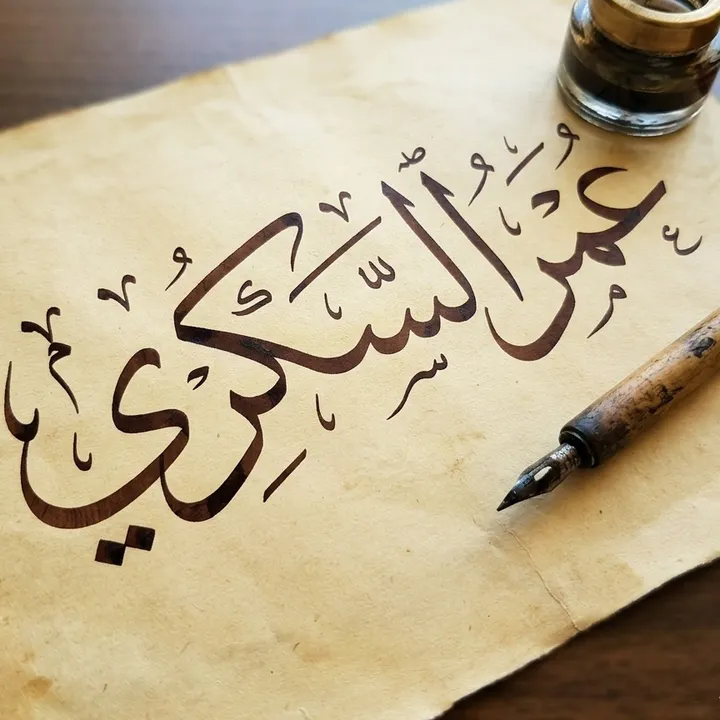 عُمَرُ السُّكَّرِي